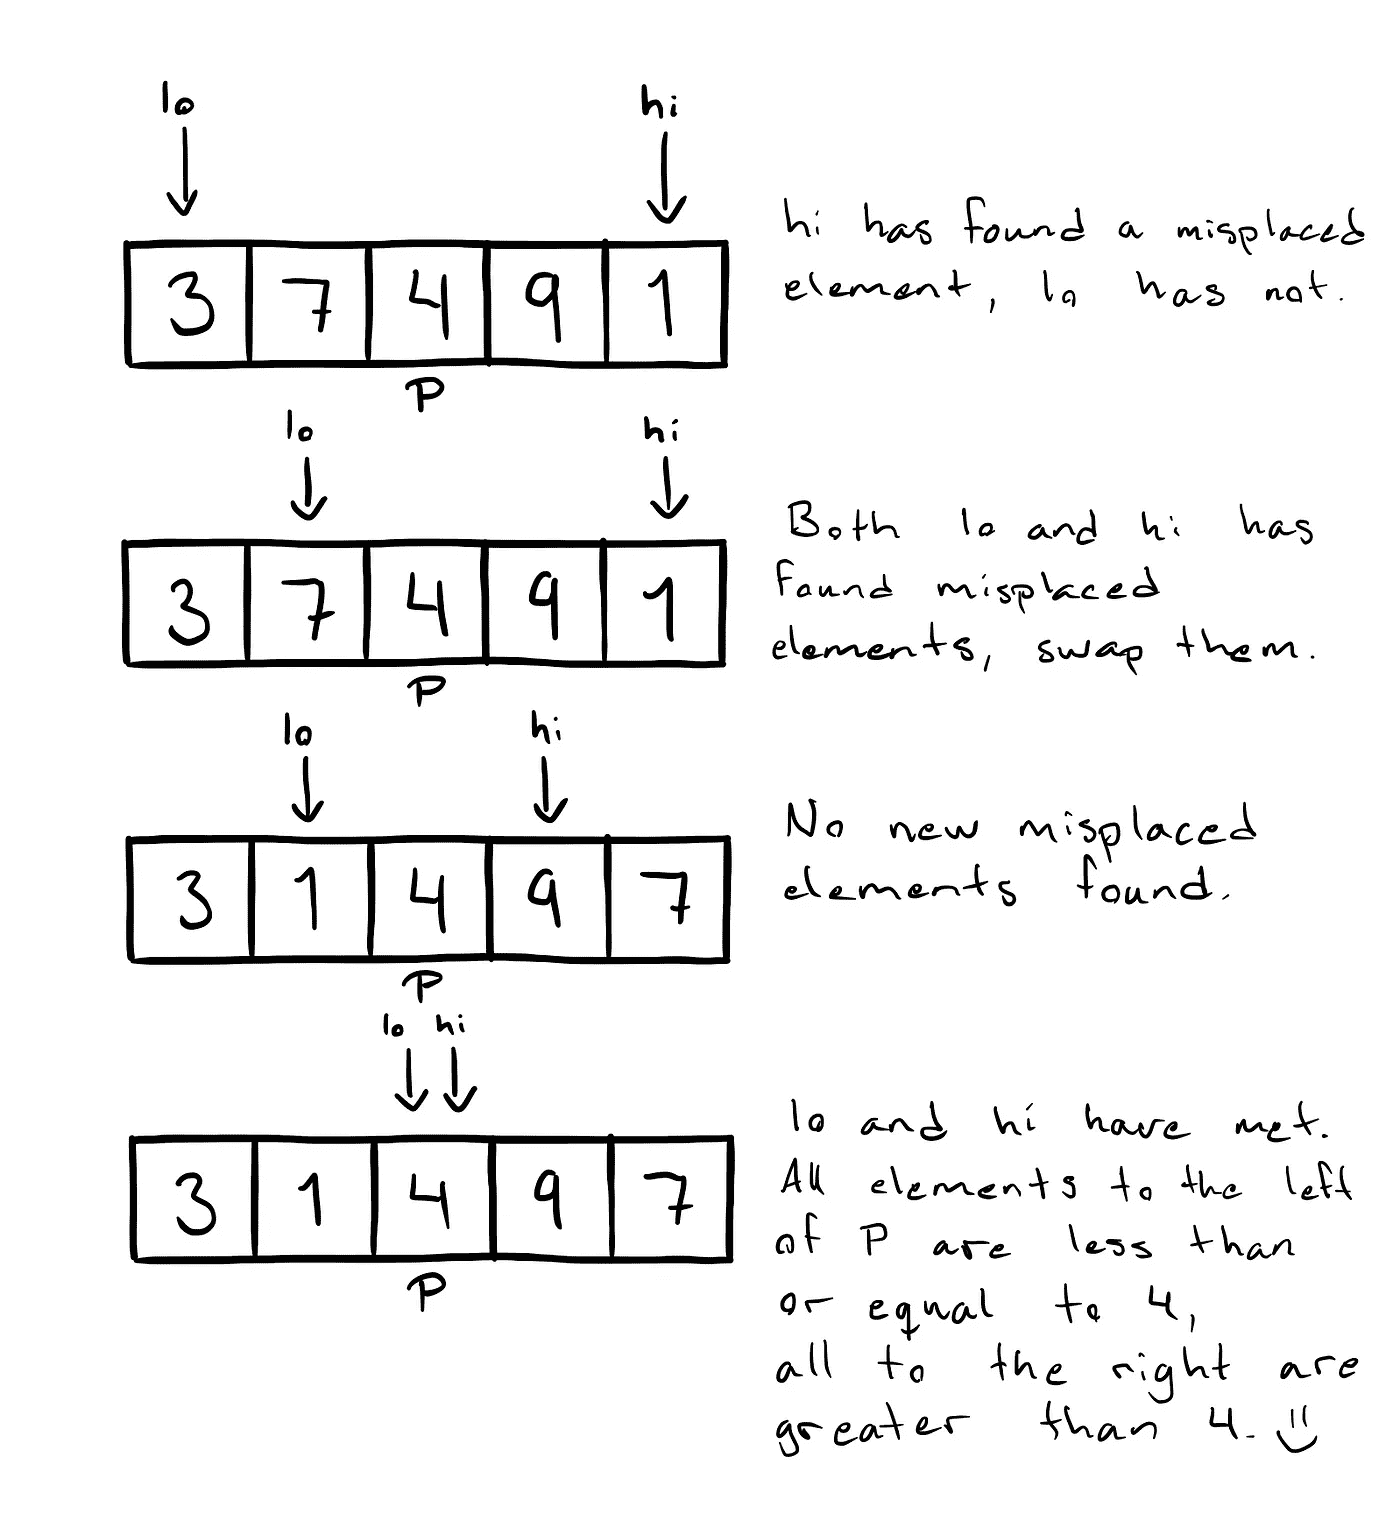 lo hi
3 7 4 9 1
P
hi has found a misplaced
element, lo has not.
lo hi
3 7 4 9 1
P
Both lo and hi has
found misplaced
elements, swap them.
lo hi
3 1 4 9 7
P
No new misplaced
elements found.
lo hi
3 1 4 9 7
P
lo and hi have met.
All elements to the left
of P are less than
or equal to 4,
all to the right are
greater than 4.